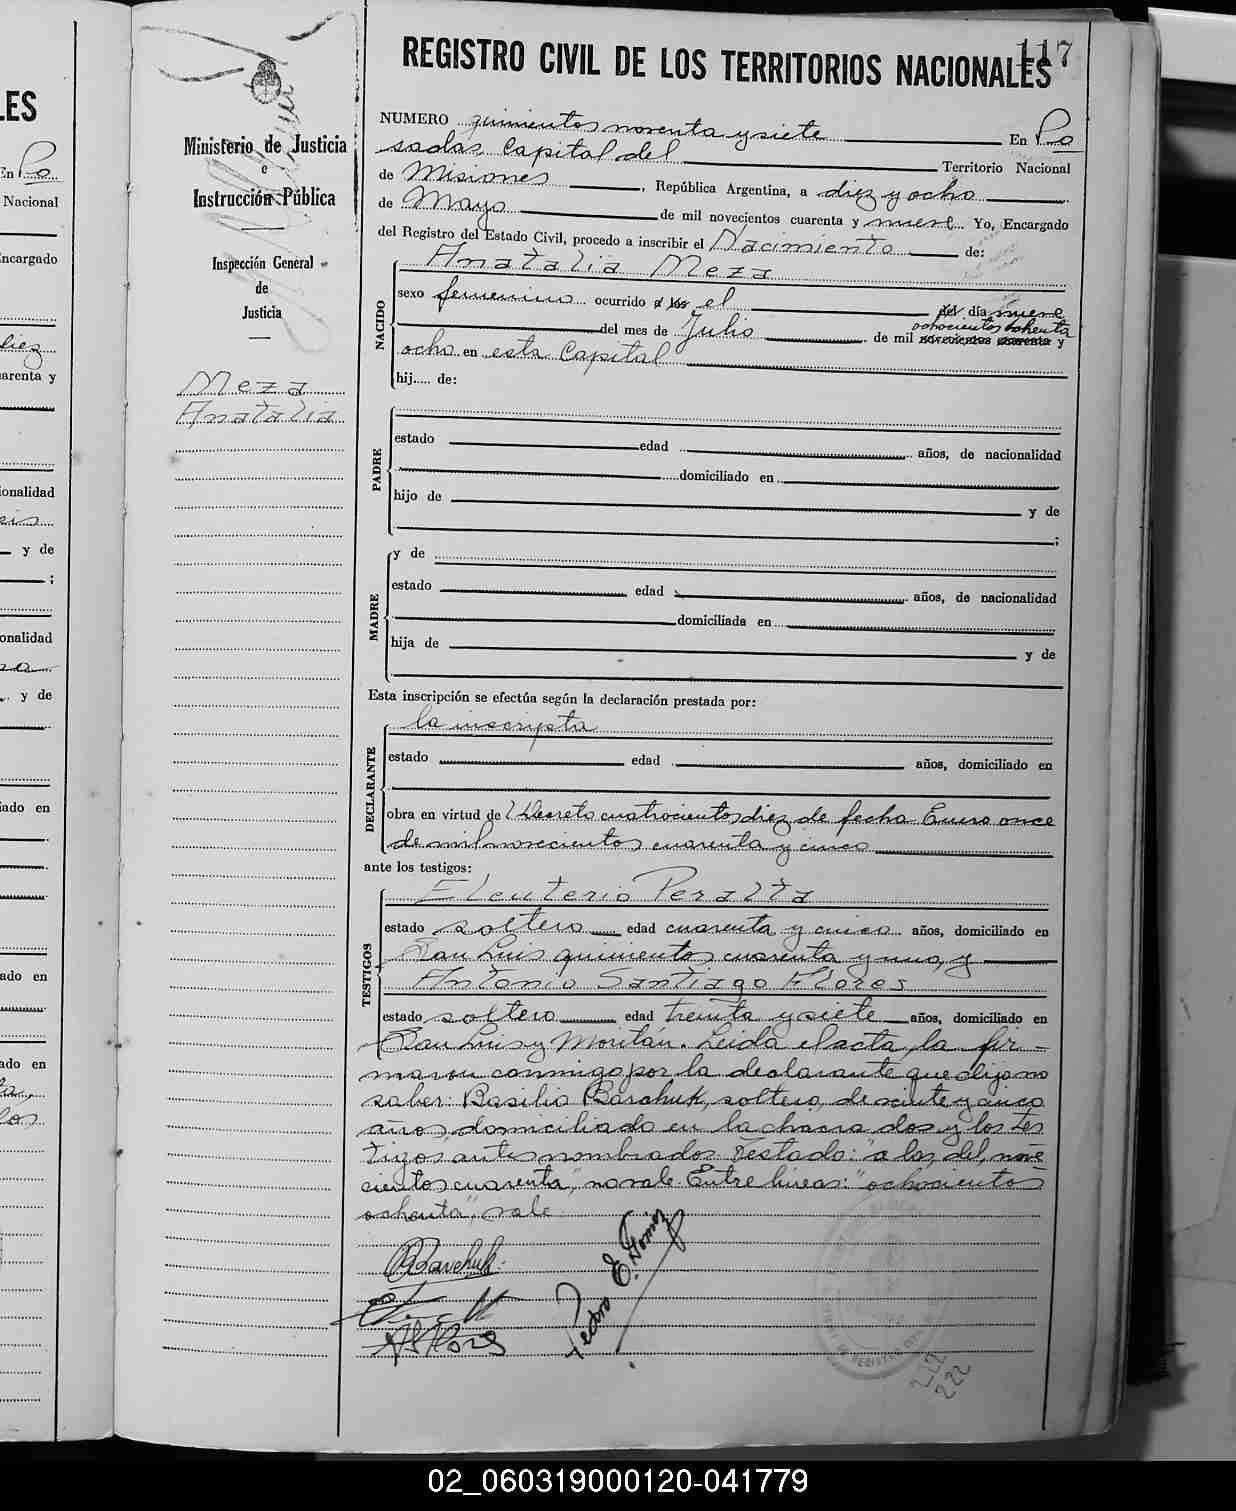 117
REGISTRO CIVIL DE LOS TERRITORIOS NACIONALES
Ministerio de Justicia
e
Instrucción Pública
Inspección General
de
Justicia
Meza
Anatalia
NUMERO quinientos noventa y siete En Po
sadas Capital del Territorio Nacional
de Misiones, República Argentina, a diez y ocho
de Mayo de mil novecientos cuarenta y nueve Yo, Encargado
del Registro del Estado Civil, procedo a inscribir el Nacimiento de:
Anatalia Meza
NACIDO
sexo femenino ocurrido a las el del día nueve
ochocientos ochenta
del mes de Julio de mil novecientos cuarenta y
ocho en esta Capital
hij..... de:
PADRE
estado edad años, de nacionalidad
domiciliado en
hijo de y de
;
MADRE
y de
estado edad años, de nacionalidad
domiciliada en
hija de y de
Esta inscripción se efectúa según la declaración prestada por:
DECLARANTE
la inscripta
estado edad años, domiciliado en
obra en virtud de Decreto cuatrocientos diez de fecha Enero once
de mil novecientos cuarenta y cinco
ante los testigos:
TESTIGOS
Eleuterio Peralta
estado soltero edad cuarenta y cinco años, domiciliado en
San Luis quinientos cuarenta y uno, y
Antonio Santiago Flores
estado soltero edad treinta y siete años, domiciliado en
San Luis y Moritán. Leida el acta, la fir-
maron conmigo por la declarante que dijo no
saber: Basilio Barchuk, soltero, de veinte y cinco
años, domiciliado en la chacra dos y los tes
tigos antes nombrados. Testado: "a las, del, nove
cientos cuarenta", no vale. Entre lineas: "ochocientos
ochenta", vale
BBarchuk
ASFlores
Pedro E.
222
222
LES
En Po
Nacional
ncargado
diez
arenta y
ionalidad
eis
y de
;
onalidad
y de
iado en
ado en
ado en
los
02_060319000120-041779